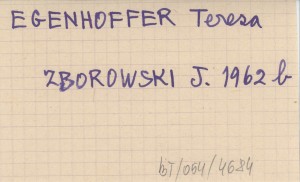 EGENHOFFER Teresa
ZBOROWSKI J. 1962 b
bT/054/4684